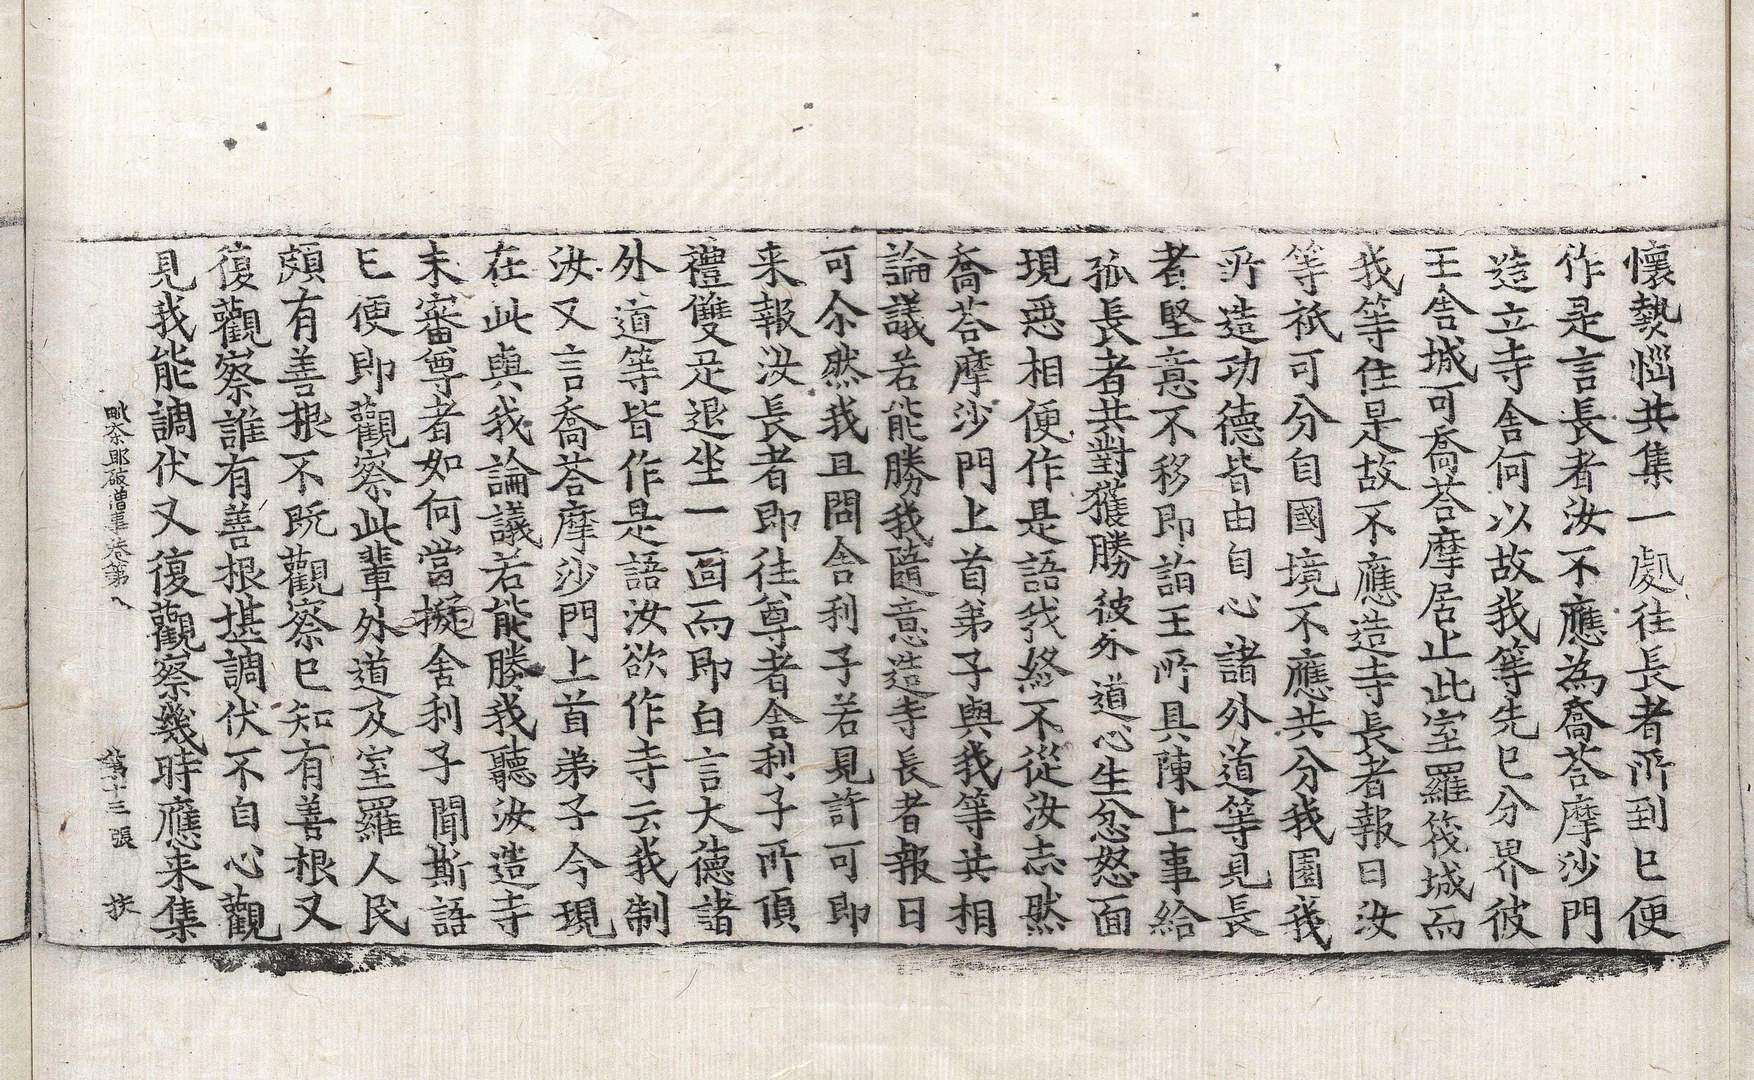 懷熱惱共集一處往長者所到已便
作是言長者汝不應為喬荅摩沙門
造立寺舍何以故我等先已分界彼
王舍城可喬荅摩居止此室羅筏城而
我等住是故不應造寺長者報曰汝
等祇可分自國境不應共分我園我
所造功德皆由自心諸外道等見長
者堅意不移即詣王所具陳上事給
孤長者共對獲勝彼外道心生忿怒面
現惡相便作是語我終不從汝志然
喬荅摩沙門上首弟子與我等共相
論議若能勝我隨意造寺長者報曰
可尒然我且問舍利子若見許可即
来報汝長者即往尊者舍利子所頂
禮雙足退坐一面而即白言大德諸
外道等皆作是語汝欲作寺云我制
汝又言喬荅摩沙門上首弟子今現
在此與我論議若能勝我聽汝造寺
未審尊者如何當擬舍利子聞斯語
已便即觀察此輩外道及室羅人民
頗有善根不既觀察已知有善根又
復觀察誰有善根堪調伏不自心觀
見我能調伏又復觀察幾時應来集
毗奈耶破僧事卷第八 第十三張 扶